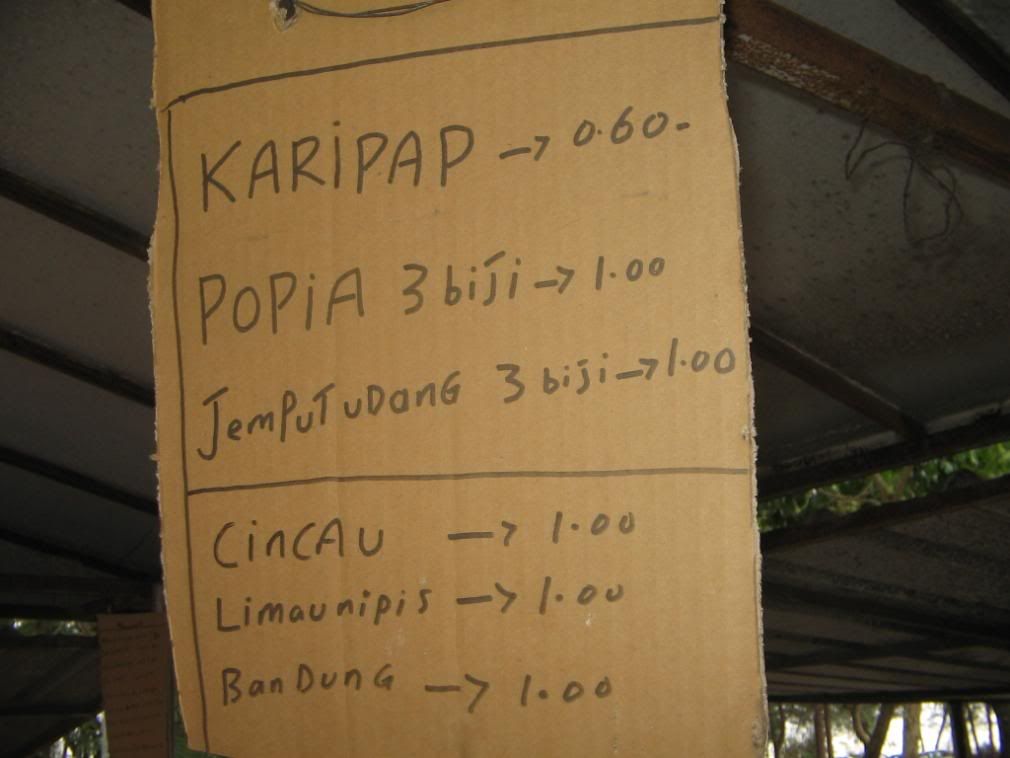 KARIPAP -> 0.60-
POPIA 3 biji -> 1.00
JemPUTUDANG 3 biji -> 1.00
CinCAU -> 1.00
Limaunipis -> 1.00
BanDunG -> 1.00